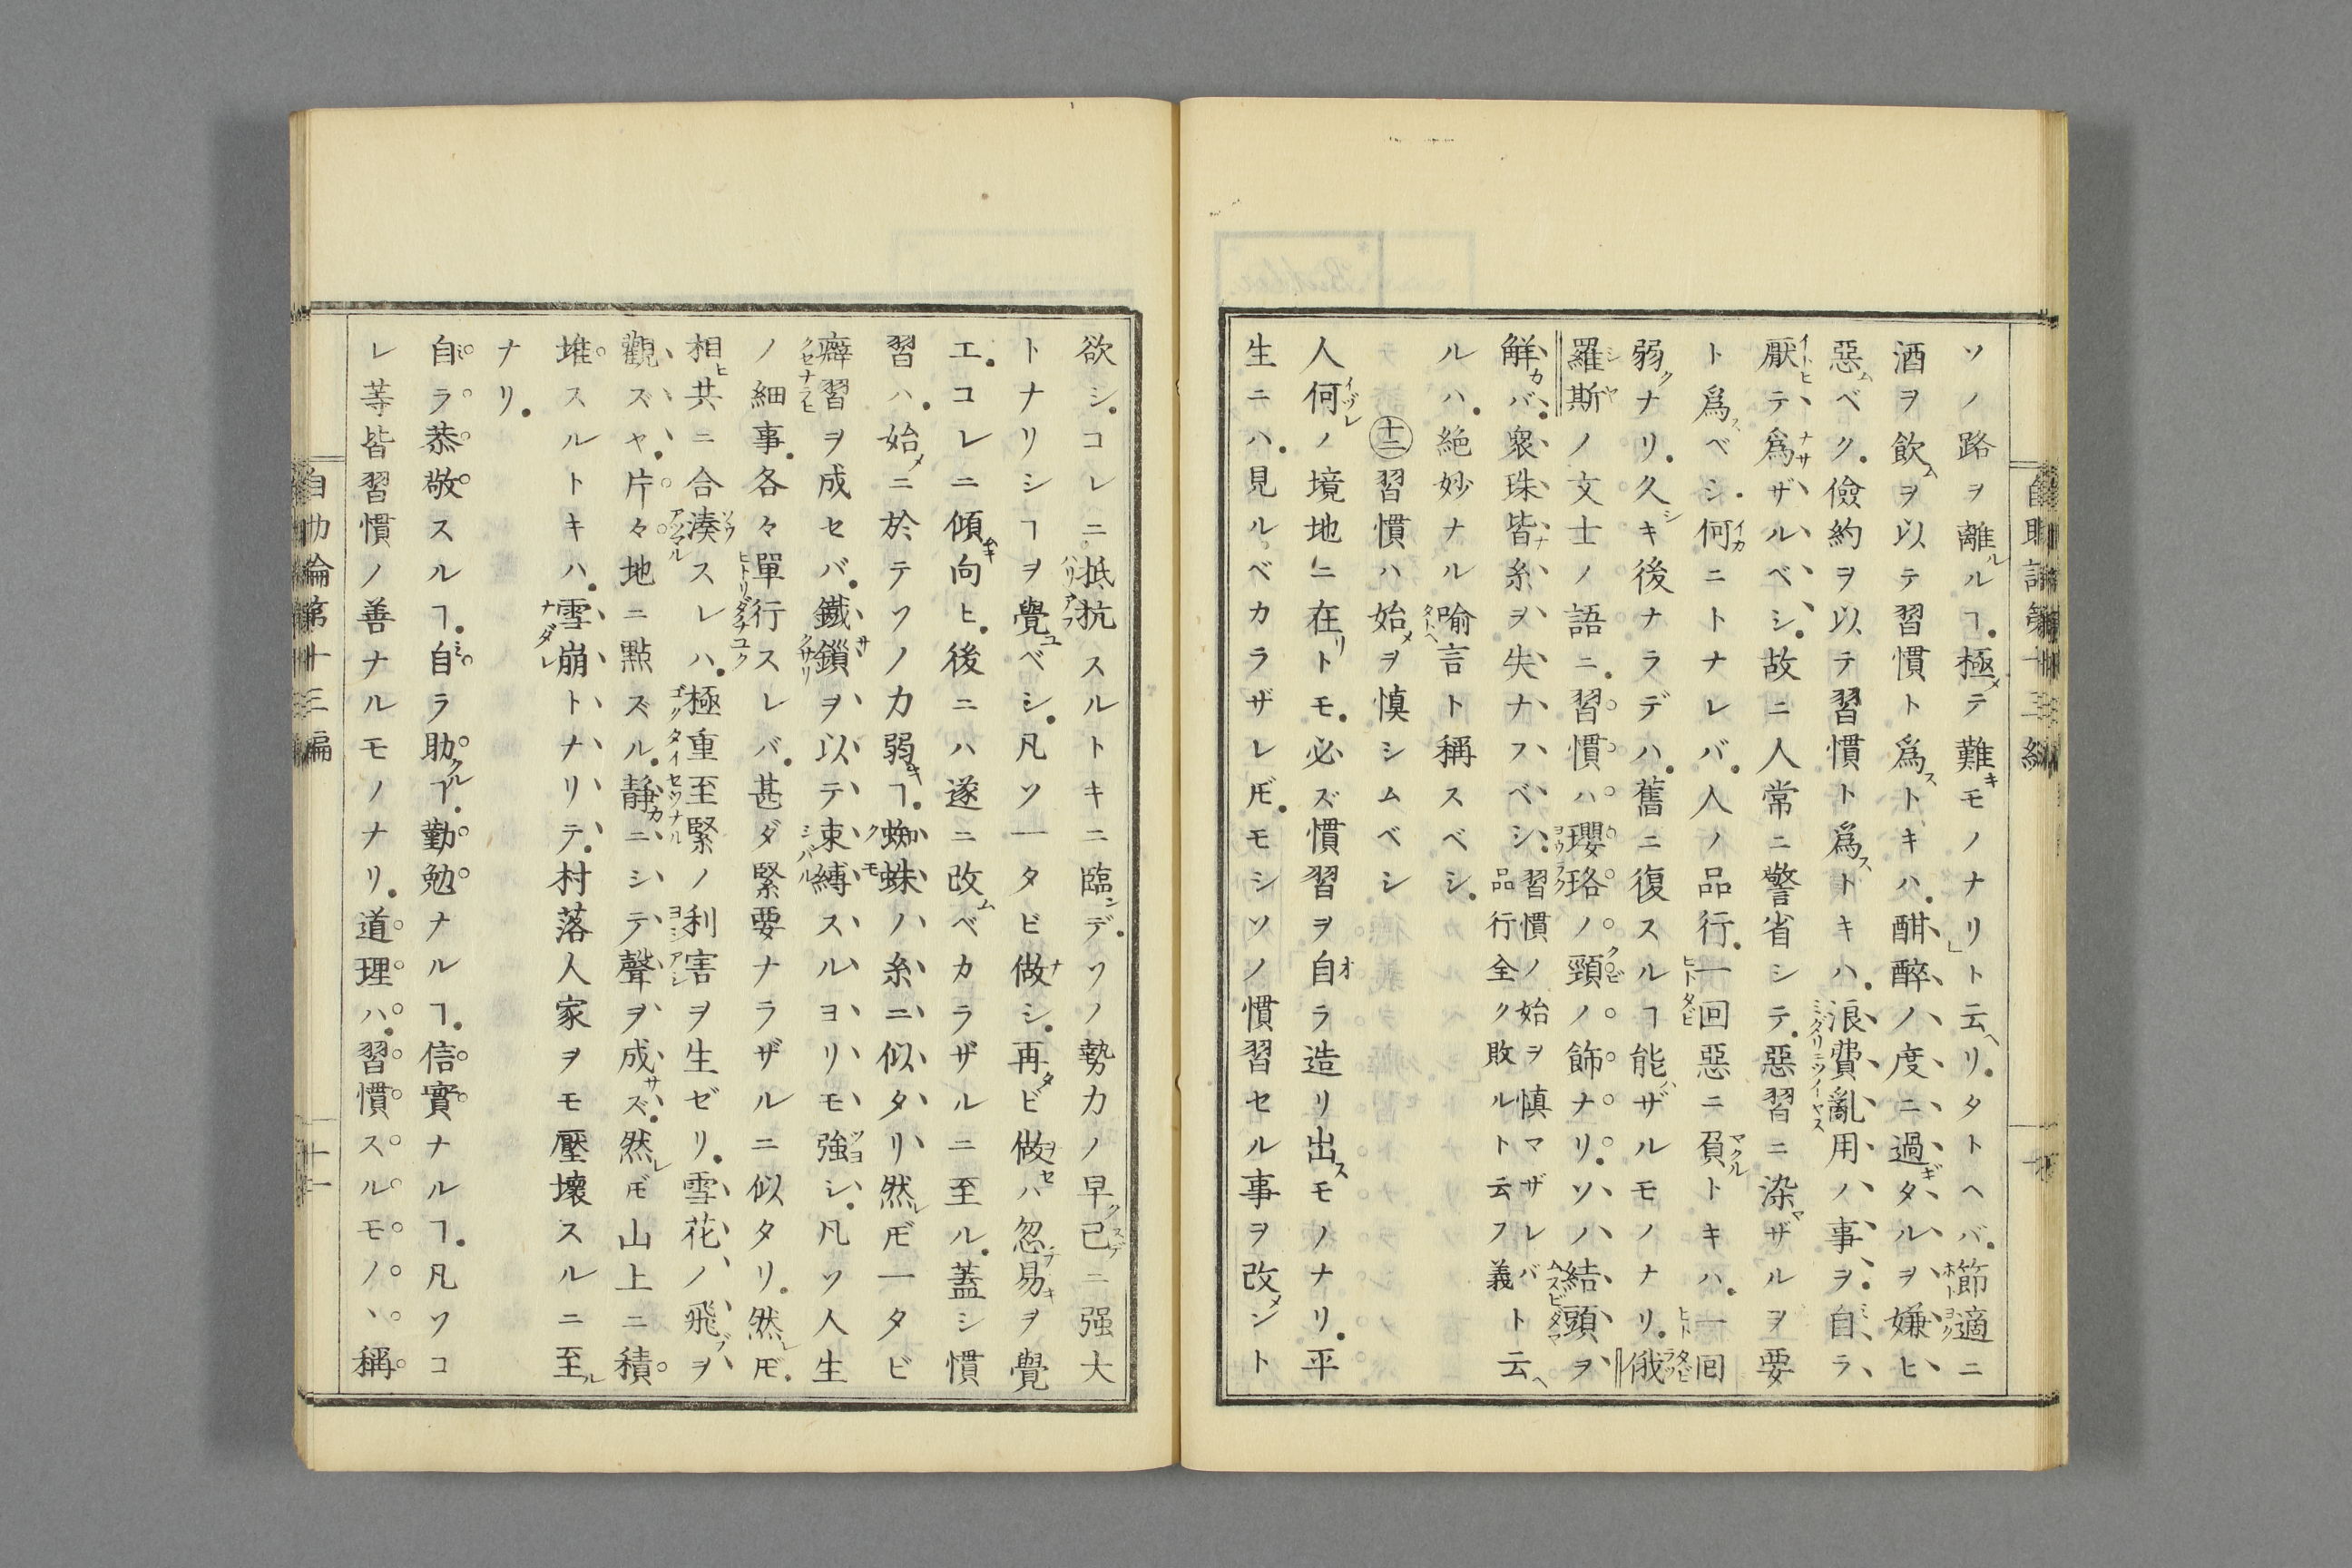 ソノ路ヲ離ルヿ極メテ難キモノナリ」ト云ヘリタトヘバ節適ニ
酒ヲ飲ムヲ以テ習慣ト爲ストキハ酣醉ノ度ニ過ギタルヲ嫌ヒ
惡ムベク儉約ヲ以テ習慣ト爲ストキハ浪費亂用ノ事ヲ自ラ
厭テ爲ザルベシ故ニ人常ニ警省シテ惡習ニ染マザルヲ要
ト爲スベシ何ニトナレバ人ノ品行一回惡ニ負トキハ一回
弱クナリ久シキ後ナラデハ舊ニ復スルヿ能ハザルモノナリ俄
羅斯ノ文士ノ語ニ習慣ハ瓔珞ノ頸ノ飾ナリソノ結頭ヲ
觧カバ衆珠皆ナ糸ヲ失ナフベシ習慣ノ始ヲ慎マザレバ品行全ク敗ルト云フ義ト云ヘ
ルハ絶妙ナル喩言ト稱スベシ
十二習慣ハ始メヲ慎シムベシ
人何ノ境地ニ在リトモ必ズ慣習ヲ自オラ造リ出スモノナリ平
生ニハ見ルベカラザレ𪜈モシソノ慣習セル事ヲ改メント
自助論第十三編
欲シコレニ抵抗スルトキニ臨ンデソノ勢力ノ早ク已ニ强大
トナリシヿヲ覺ユベシ凡ソ一タビ做ナシ再タビ做セハ忽チ易キヲ覺
エコレニ傾ムキ向ヒ後ニハ遂ニ改ムベカラザルニ至ル蓋シ慣
習ハ始メニ於テソノ力弱キヿ蜘蛛ノ糸ニ似タリ然レ𪜈一タビ
癖習ヲ成セバ鐵鎖ヲ以テ束縛スルヨリモ強シ凡ソ人生
ノ細事各々單行スレバ甚ダ緊要ナラザルニ似タリ然レ𪜈
相ヒ共ニ合湊スレハ極重至緊ノ利害ヲ生ゼリ雪花ノ飛ブヲ
觀ズヤ片々地ニ點ズル靜カニシテ聲ヲ成サズ然レ𪜈山上ニ積
堆スルトキハ雪崩トナリテ村落人家ヲモ壓壊スルニ至ル
ナリ
自ラ恭敬スルヿ自ラ助クルヿ勤勉ナルヿ信實ナルヿ凡ソコ
レ等皆習慣ノ善ナルモノナリ道理ハ習慣スルモノヽ稱
自助論第十三編　十一